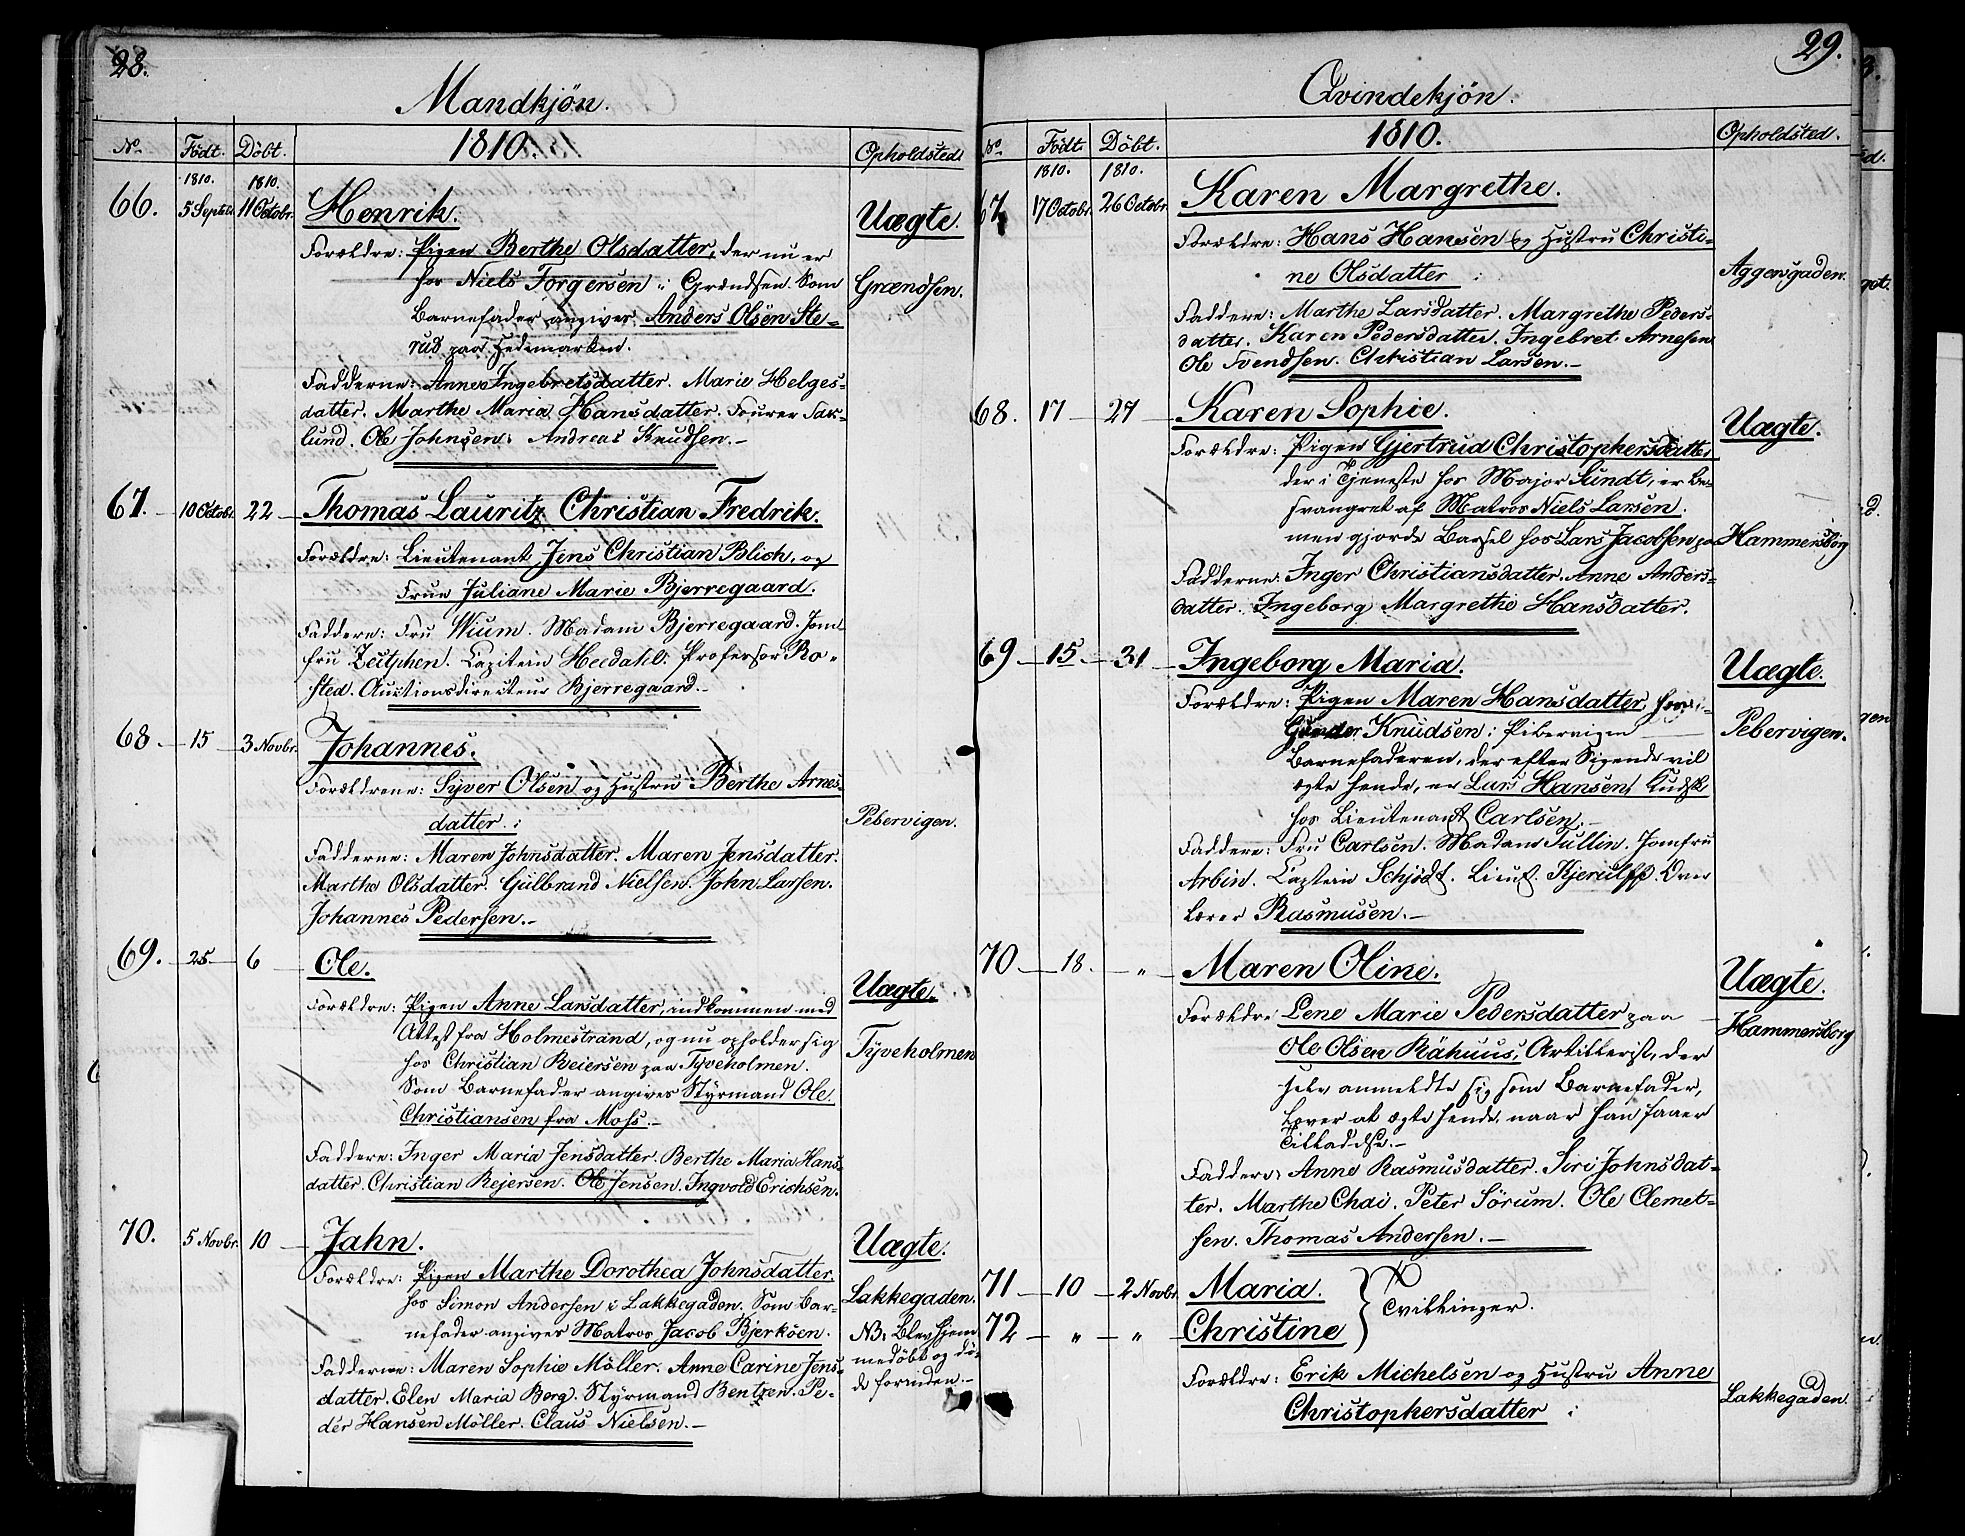 28.
Mandkjøn.
No. Födt. Döbt. 1810. Opholdsted
1810. 1810.
66. 5 Septbr 11 Octobr. Henrik. Uægte.
Forældre: Pigen Berthe Olsdatter, der nu er
hos Niels Torgersen i Grændsen. Som Grændsen.
Barnefader angives Anders Olsön Ste-
rud paa Hedemarken.
Fadderne: Anne Ingebretsdatter. Marie Helges-
datter. Marthe Maria Hansdatter. Fourer
lund. Ole Johnsen. Andreas Knudsen.-
67. 10 Octobr. 22 Thomas Lauritz Christian Fredrik.
Forældre: Lieutenant Jens Christian Blich, og
Frue Juliane Marie Bjerregaard.
Faddere: Fru Wium. Madam Bjerregaard. Jom-
fru Zeitphen. Capitein Heedahl. Professor Ro-
sted. Auctionsdirecteur Bjerregaard.-
68 15 3 Novbr. Johannes.
Forældrene: Syver Olsen og Hustru Berthe Arnes-
datter. : Pebervigen.
Fadderne: Maren Johnsdatter. Maren Jensdatter.
Marthe Olsdatter. Gulbrand Nielsen. John Larsen.
Johannes Pedersen.-
69. 25 6 Ole. Uægte.
Forældre: Pigen Anne Larsdatter, indkommen med
Attest fra Holmestrand, og nu opholder sig Tyveholmen
hos Christian Reiersen paa Tyveholmen.
Som Barnefader angives Styrmand Ole
Christiansen fra Moss.-
Faddere: Inger Maria Jensdatter. Berthe Maria Hans-
datter. Christian Rejersen. Ole Jensen. Ingvold Erichsen.
70. 5 Novbr. 10 Jahn. Uægte.
Forældre: Pigen Marthe Dorothea Johnsdatter
hos Simon Andersen i Lakkegaden. Som Bar- Lakkegaden.
nefader angives Matros Jacob Bjerköen. NB: Blev hjem
Fadderne: Maren Sophie Möller. Anne Carine Jens- medöbt og dö-
datter. Elen Maria Berg. Styrmand Bentzen. Pe- de forinden.-
der Hansen Möller. Claus Nielsen.-
29.
Qvindekjön.
No Födt. Döbt. 1810. Opholdsted.
1810. 1810.
67 17 Octobr. 26 Octobr. Karen Margrethe.
Forældre: Hans Hansen og Hustru Christi-
ne Olsdatter : Aggersgaden.
Faddere: Marthe Larsdatter. Margrethe Peders-
datter. Karen Pedersdatter. Ingebret Arnesen
Ole Svendsen. Christian Larsen.-
68. 17 27 Karen Sophie. Uægte.
Forældre: Pigen Gjertrud Christophersdatter,
der i Tjeneste hos Major Sundt, er be-
svangret af Matros Niels Larsen.
men gjorde Barsel hos Lars Jacobsen paa Hammersborg
Fadderne: Inger Christiansdatter. Anne Anders-
datter. Ingeborg Margrethe Hansdatter.
69 15 31 Ingeborg Maria. Uægte.
Forældre: Pigen Maren Hansdatter, hos
Gunder Knudsen i Pibervigen Pebervigen.
Barnefaderen, der efter Sigende vil
ægte hende, er Lars Hansen, Kudsk
hos Lieutenant Carlsen.-
Faddere: Fru Carlsen. Madam Tullin. Jomfru
Arbin. Captein Schjödt. Lieut. Kjerulff. Over
lærer Rasmusen.-
70 18. " Maren Oline. Uægte.
Forældre Lene Marie Pedersdatter paa Hammersborg
Ole Olsen Råhuus, Artillerist, der
selv anmeldte sig som Barnefader,
lover at ægte hende, naar han faaer
Tilladelse.-
Faddere: Anne Rasmusdatter. Siri Johnsdat-
ter. Marthe Chai. Peter Sörum. Ole Clemet-
sen. Thomas Andersen.-
71 10 2 Novbr. Maria.
Tvillinger.
72 " " Christine
Forældre: Erik Michelsen og Hustru Anne
Christophersdatter : Lakkegaden.